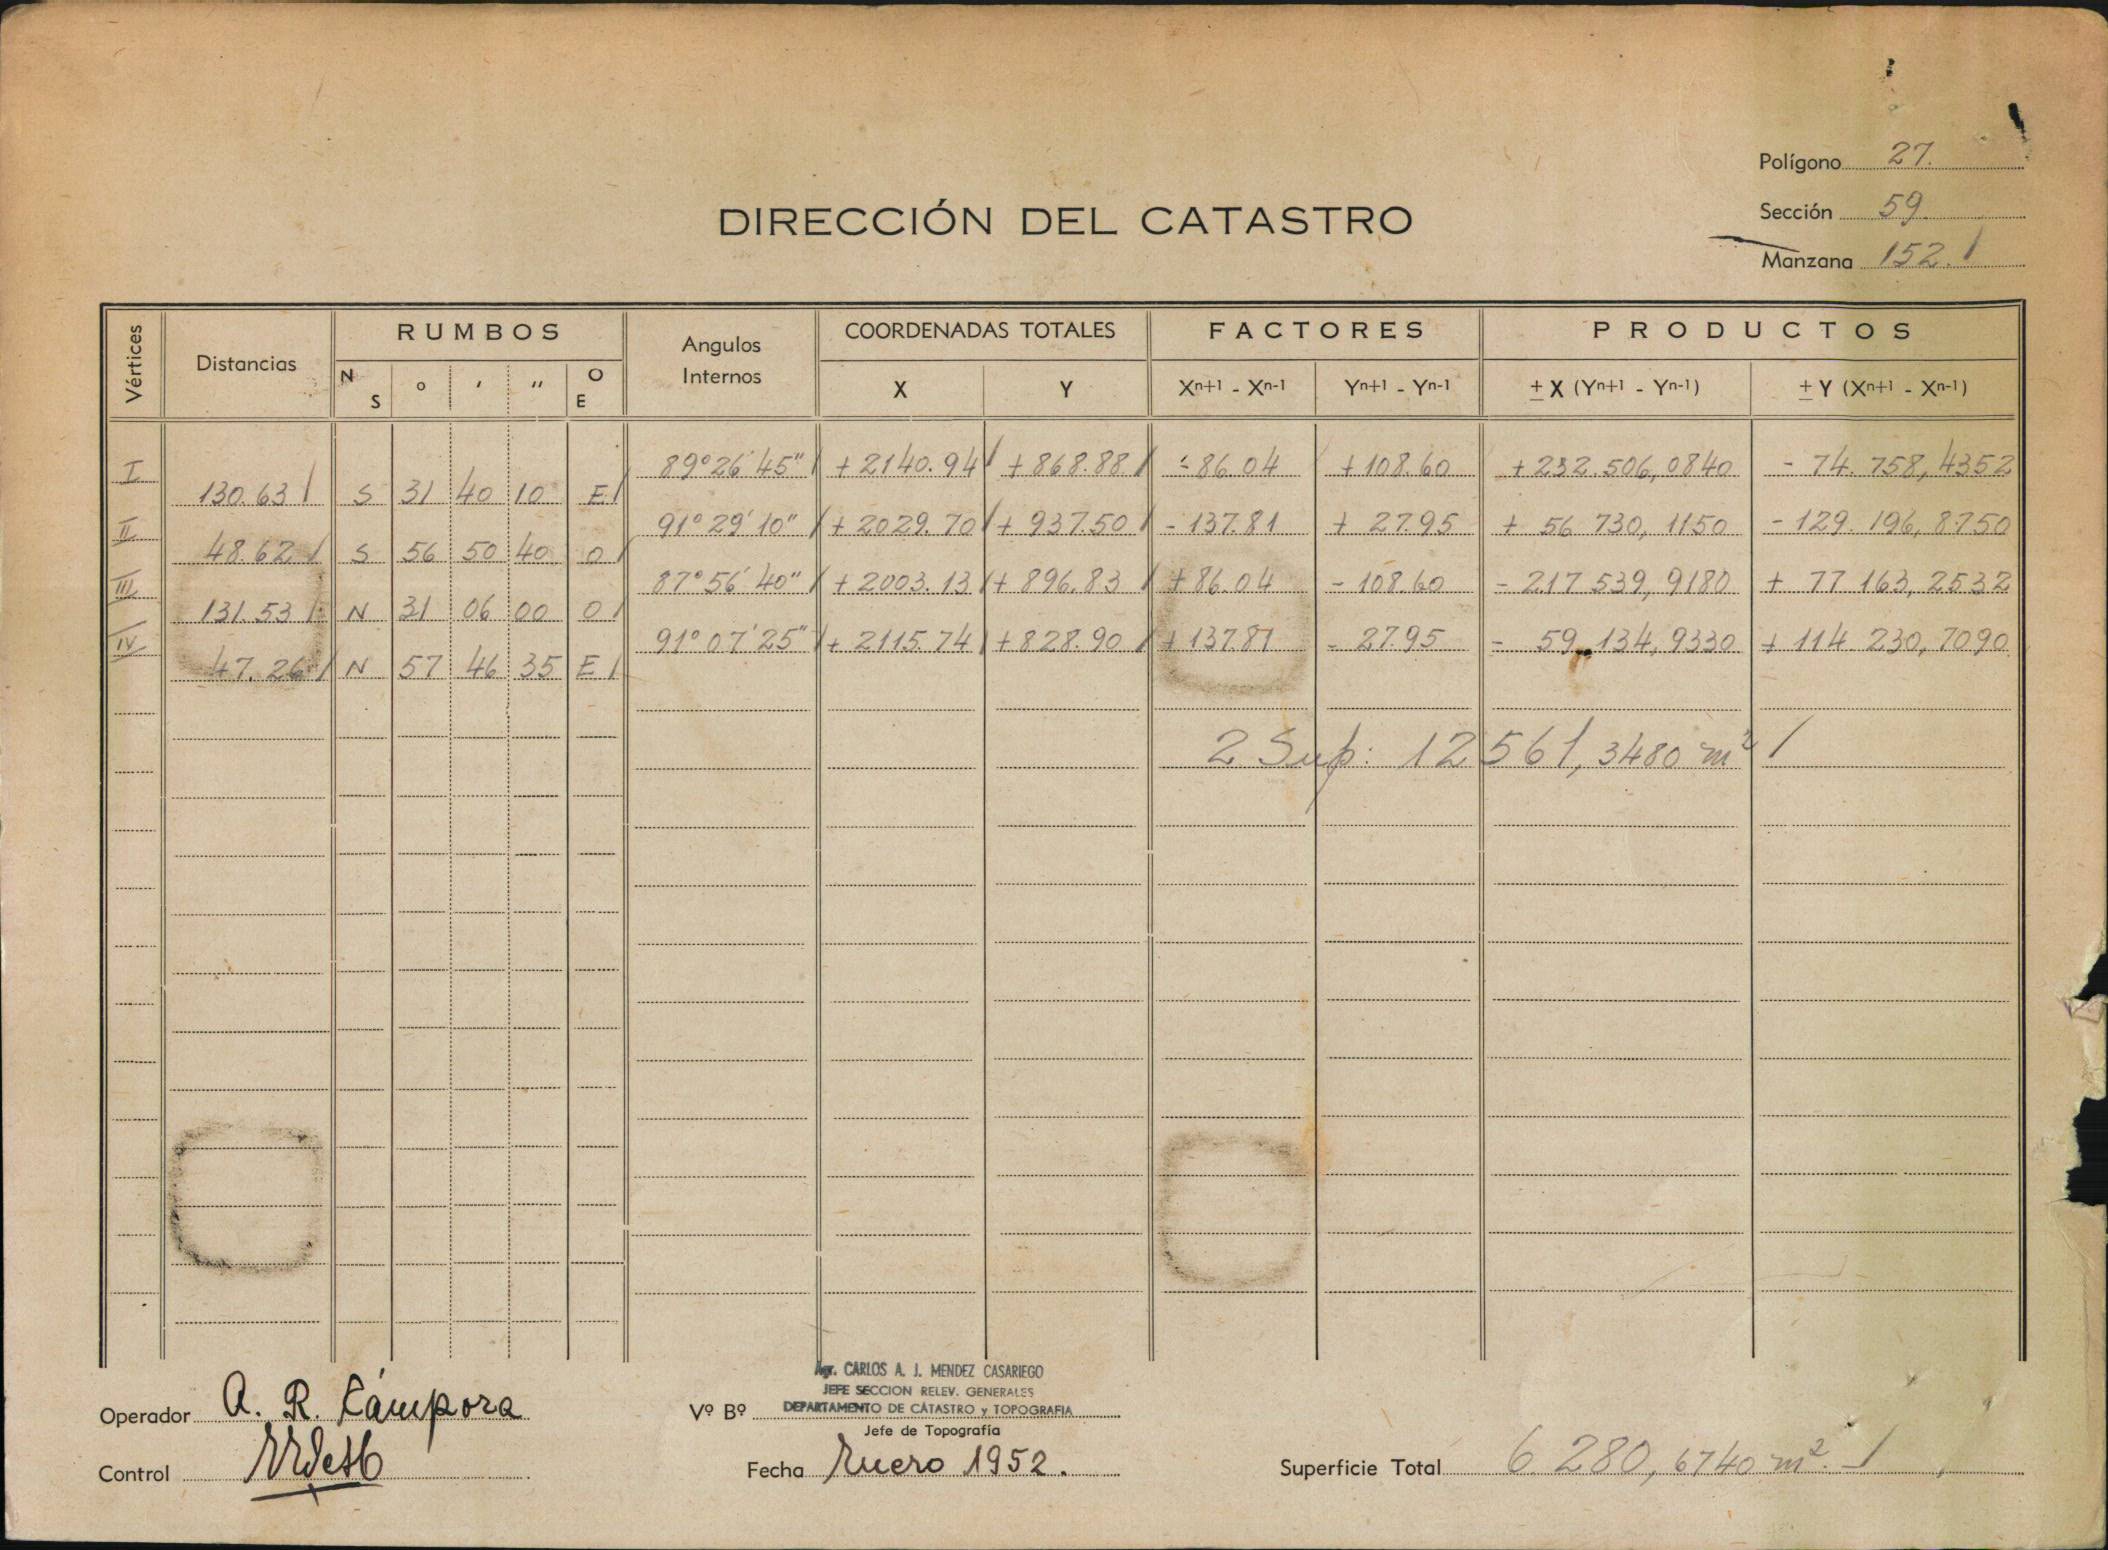 Polígono 27.
Sección 59.
Manzana 152.
DIRECCIÓN DEL CATASTRO
Vértices Distancias RUMBOS Angulos Internos COORDENADAS TOTALES FACTORES PRODUCTOS
N S ° ' " O E X Y Xn+1 - Xn-1 Yn+1 - Yn-1 ± X (Yn+1 - Yn-1) ± Y (Xn+1 - Xn-1)
I 89°26'45" +2140.94 +868.88 -86.04 +108.60 +232.506,0840 - 74.758,4352
130.63 S 31 40 10 E
II 91°29'10" +2029.70 +937.50 -137.81 + 27.95 + 56 730,1150 -129.196,8750
48.62 S 56 50 40 O
III 87°56'40" +2003.13 +896.83 +86.04 -108.60 -217 539,9180 + 77 163,2532
131.53 N 31 06 00 O
IV 91°07'25" +2115.74 +828.90 +137.81 - 27.95 - 59.134,9330 +114 230,7090
47.26 N 57 46 35 E
2 Sup: 12 561,3480 m²
Agr. CARLOS A. J. MENDEZ CASARIEGO
JEFE SECCION RELEV. GENERALES
DEPARTAMENTO DE CATASTRO y TOPOGRAFIA
Operador A. R. Cámpora
Vº Bº
Jefe de Topografía
Control
Fecha Enero 1952.
Superficie Total 6.280,6740 m².